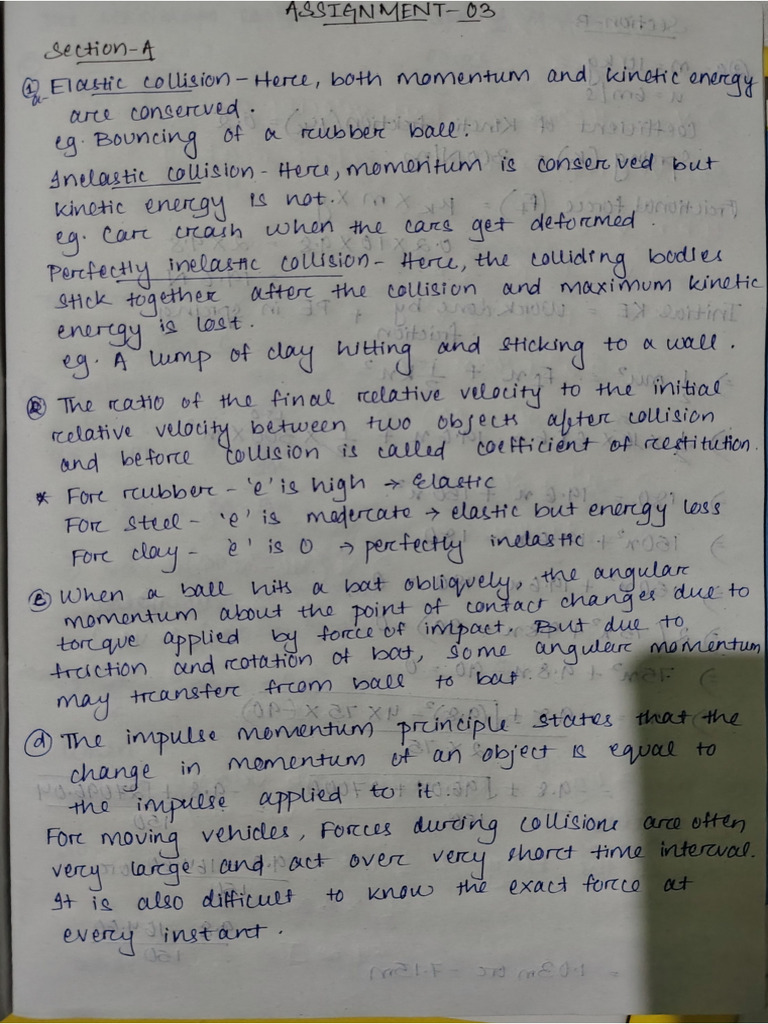 ASSIGNMENT-03
Section-A
① Elastic collision - Here, both momentum and kinetic energy
a- are conserved.
eg. Bouncing of a rubber ball.
Inelastic collision - Here, momentum is conserved but
kinetic energy is not.
eg. Car crash when the cars get deformed.
Perfectly inelastic collision - Here, the colliding bodies
stick together after the collision and maximum kinetic
energy is lost.
eg. A lump of clay hitting and sticking to a wall.
The ratio of the final relative velocity to the initial
relative velocity between two objects after collision
and before collision is called coefficient of restitution.
* For rubber - 'e' is high → Elastic
For steel - 'e' is moderate → elastic but energy loss
For clay - 'e' is 0 → perfectly inelastic.
When a ball hits a bat obliquely, the angular
momentum about the point of contact changes due to
torque applied by force of impact. But due to
friction and rotation of bat, some angular momentum
may transfer from ball to bat
ⓓ The impulse momentum principle states that the
change in momentum of an object is equal to
the impulse applied to it.
For moving vehicles, Forces during collisions are often
very large and act over very short time interval.
It is also difficult to know the exact force at
every instant.